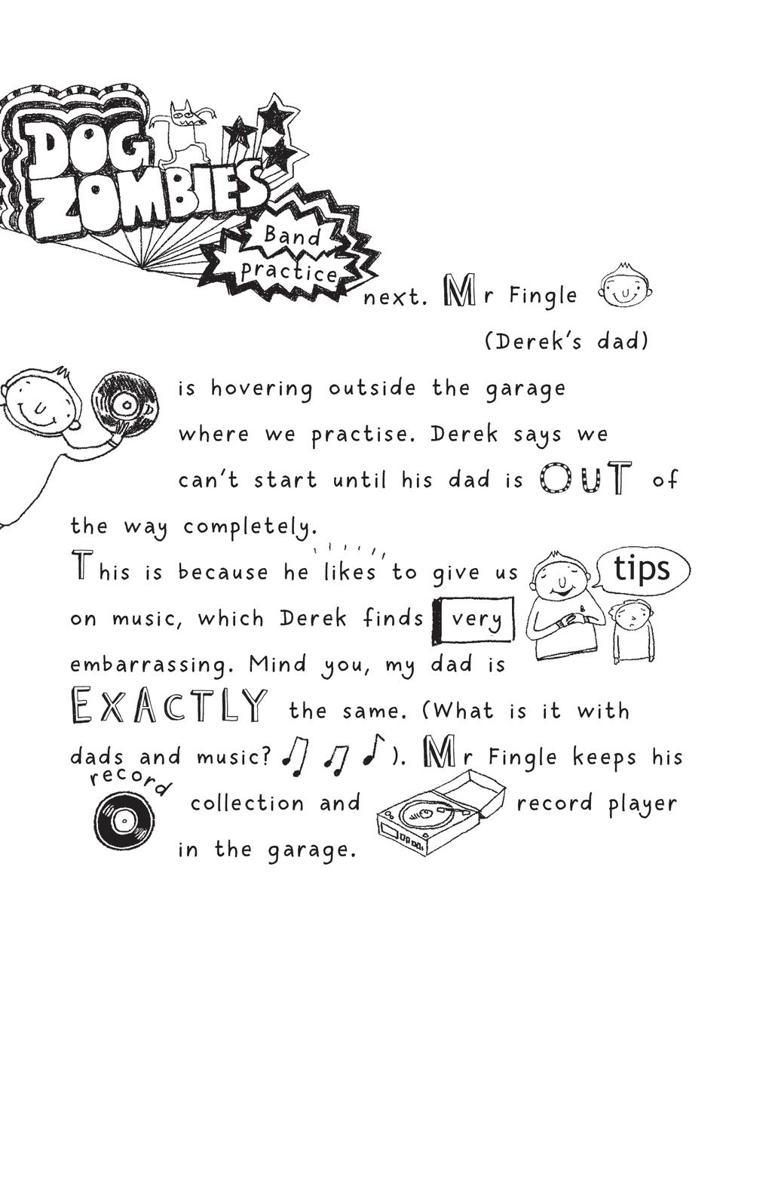 DOG
ZOMBIES
Band
practice
next. Mr Fingle
(Derek's dad)
is hovering outside the garage
where we practise. Derek says we
can't start until his dad is OUT of
the way completely.
This is because he likes to give us
tips
on music, which Derek finds very
embarrassing. Mind you, my dad is
EXACTLY the same. (What is it with
dads and music? ). Mr Fingle keeps his
record
collection and record player
in the garage.